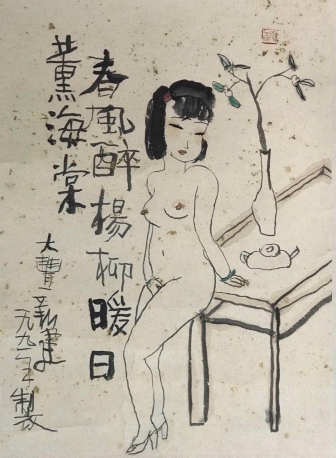 春風醉楊柳暖日
薰海棠
大豐新建
一九九一年製